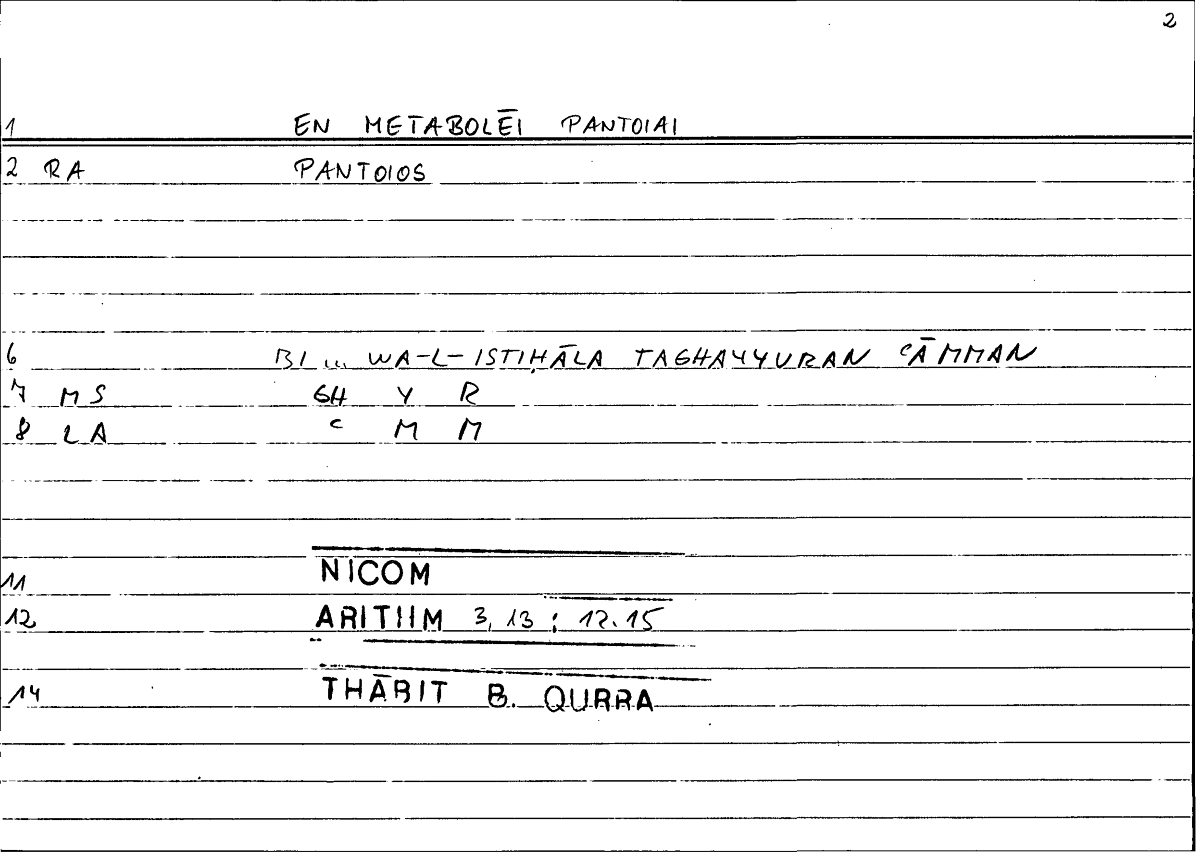 2
1 EN METABOLĒI PANTOIAI
2 RA PANTOIOS
6 BI ... WA-L-ISTIḤĀLA TAGHAYYURAN ʿĀMMAN
7 MS GH Y R
8 LA ʿ M M
11 NICOM
12 ARITHM 3,13 ; 12.15
14 THĀBIT B. QURRA